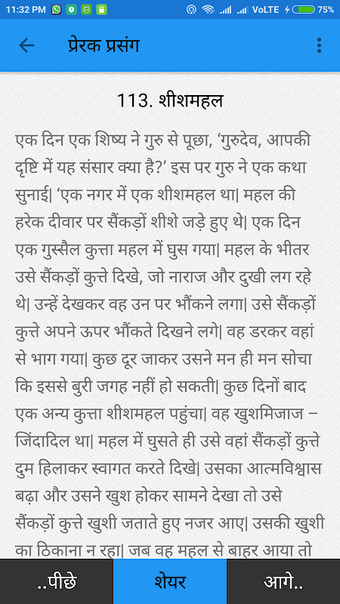 11:32 PM VoLTE 75%
प्रेरक प्रसंग
113. शीशमहल
एक दिन एक शिष्य ने गुरु से पूछा, ‘गुरुदेव, आपकी
दृष्टि में यह संसार क्या है?’ इस पर गुरु ने एक कथा
सुनाई| ‘एक नगर में एक शीशमहल था| महल की
हरेक दीवार पर सैंकड़ों शीशे जड़े हुए थे| एक दिन
एक गुस्सैल कुत्ता महल में घुस गया| महल के भीतर
उसे सैंकड़ों कुत्ते दिखे, जो नाराज और दुखी लग रहे
थे| उन्हें देखकर वह उन पर भौंकने लगा| उसे सैंकड़ों
कुत्ते अपने ऊपर भौंकते दिखने लगे| वह डरकर वहां
से भाग गया| कुछ दूर जाकर उसने मन ही मन सोचा
कि इससे बुरी जगह नहीं हो सकती| कुछ दिनों बाद
एक अन्य कुत्ता शीशमहल पहुंचा| वह खुशमिजाज –
जिंदादिल था| महल में घुसते ही उसे वहां सैंकड़ों कुत्ते
दुम हिलाकर स्वागत करते दिखे| उसका आत्मविश्वास
बढ़ा और उसने खुश होकर सामने देखा तो उसे
सैंकड़ों कुत्ते खुशी जताते हुए नजर आए| उसकी खुशी
का ठिकाना न रहा| जब वह महल से बाहर आया तो
..पीछे शेयर आगे..